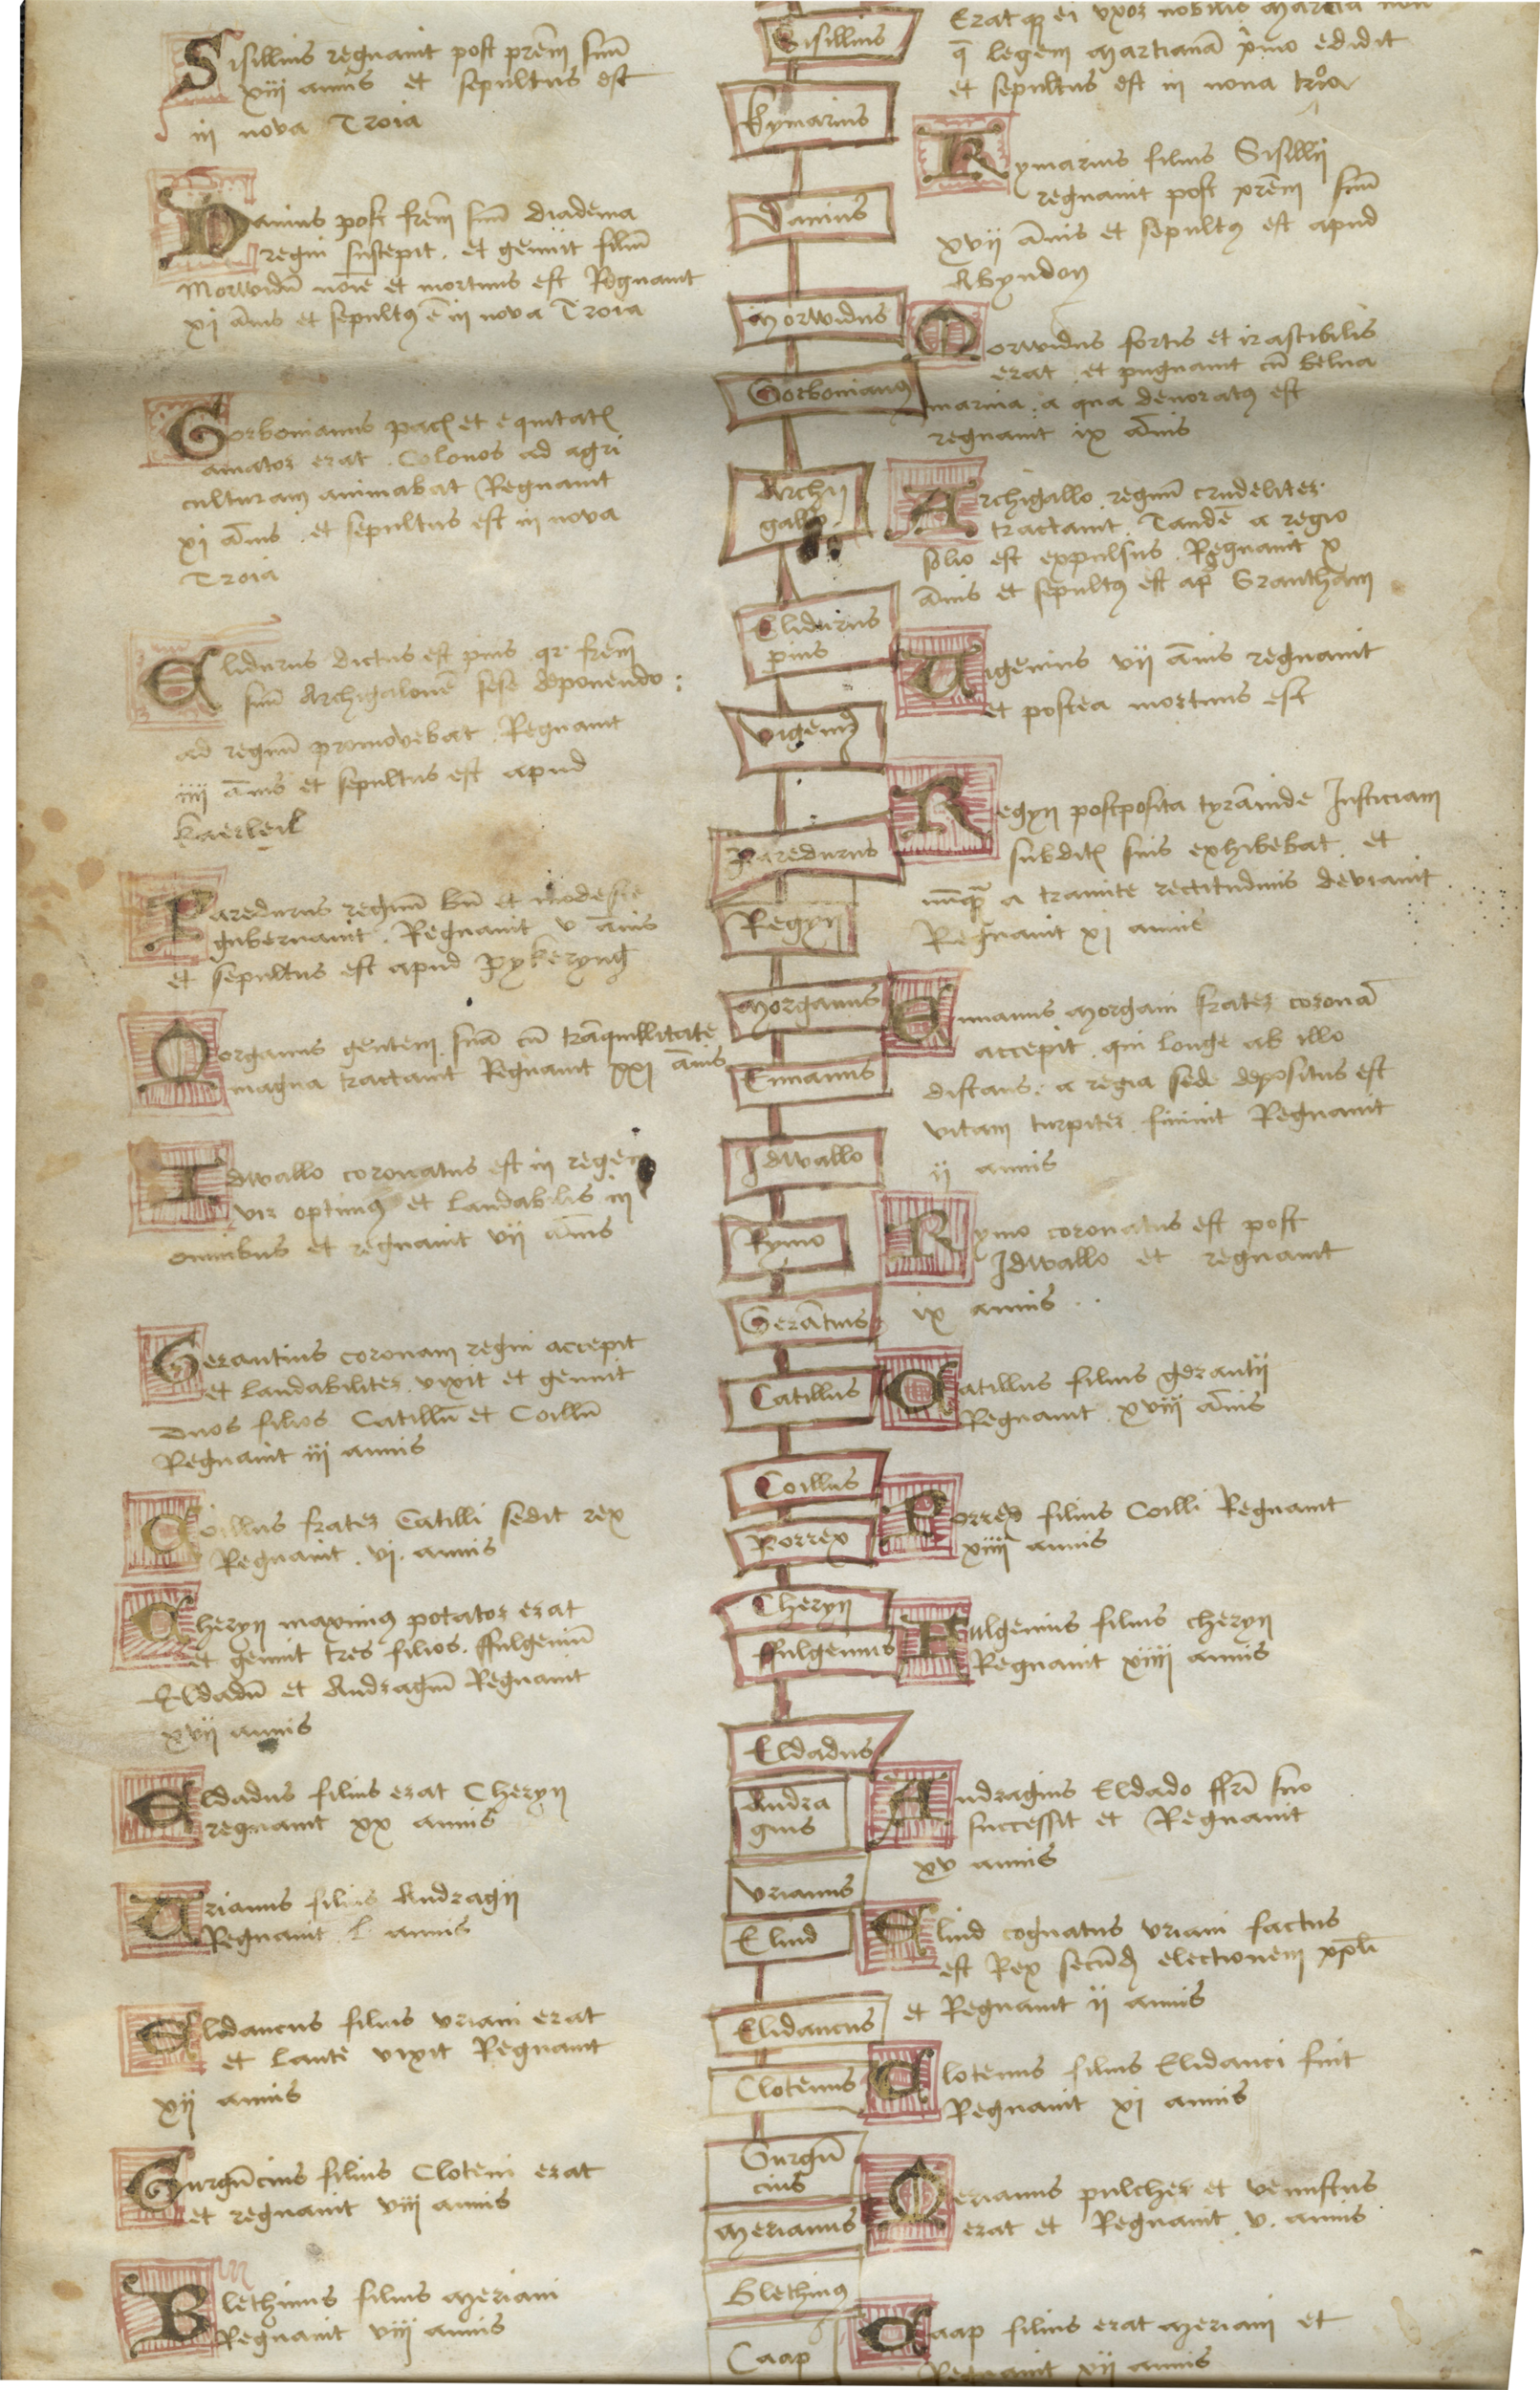 Sisillius regnauit post prēm suū
xiij annis et sepultus est
in nova Troia
Danius post frēm suū diadema
regni suscepit . et genuit filiū
Morwidū noīe et mortuus est Regnauit
xj āms et sepultꝰ ē in nova Troia
Gorbonianus pacꝭ et equitatꝭ
amator erat . Colonos ad agri
culturam animabat Regnauit
xj ānis . et sepultus est in nova
Troia
Elidurus dictus est pius qr frēm
suū Archigalonē sese deponendo :
ad regnū promovebat . Regnauit
iiij ānis et sepultus est apud
Kaerleil
Paredurus regnum bn̄ et modeste
gubernauit . Regnauit v ānis
et sepultus est apud Pykeryng
Morganus gentem suā cū trāquillitate
magna tractauit Regnauit xxj ānis
Idwallo coronatus est in regem
vir optimꝰ et laudabilis in
omnibus et regnauit vij ānis
Gerantius coronam regni accepit
et laudabiliter vixit et genuit
duos filios Catillū et Coillū
Regnauit iij annis
Coillus frater Catilli sedit rex
Regnauit . vj . annis
Cheryn maximꝰ potator erat
et genuit tres filios . ffulgeniū
Eldadū et Andragiū Regnauit
xvij annis
Eldadus filius erat Cheryn
regnauit xx annis
Urianus filius Andragij
Regnauit . l annis
Elidaucus filius Uriani erat
et laute vixit Regnauit
xij annis
Gurgūcius filius Cloteni erat
et regnauit viij annis
Blethinus filius Meriani
Regnauit viij annis
Sisillius
Kymarius
Danius
Morwidus
Gorbonianꝰ
Archi
gallo
Elidurus
pius
Vigeniꝰ
Paredurus
Regyn
Morganus
Ennanus
Idwallo
Rymo
Gerātius
Catillus
Coillus
Porrex
Cheryn
ffulgenius
Eldadus
Andra
gius
Urianus
Eliud
Elidaucus
Clotenus
Gurgū
cius
Merianus
Blethinꝰ
Caap
Erat qꝫ ei uxor nobilis Marcia
q̄ legem Martianā pimo edidit
et sepultus est in nova troia
Kymarius filius Sisillij
regnauit post prēm suū
xvij ānis et sepultꝰ est apud
Abyndon
Morwidus fortis et irascibilis
erat . et pugnauit cū belua
marina . a qua devoratꝰ est
regnauit ix ānis
Archigallo regnū crudeliter
tractauit . Tandē a regio
solio est expulsus . Regnauit x
ānis et sepultꝰ est ap̄ Grantham
Vigenius vij ānis regnauit
et postea mortuus est
Regyn postposita tyrānide Iusticiam
subditꝭ suis exhibebat . et
nūqᷓ a tramite rectitudinis deviauit
Regnauit xj annis
Ennanus Morgani frater coronā
accepit . qui longe ab illo
distans : a regia sede depositus est
vitam turpiter finiuit Regnauit
ij annis
Rymo coronatus est post
Idwallo et regnauit
ix annis .
Catillus filius gerantij
Regnauit . xviij ānis
Porrex filius Coilli Regnauit
xiiij annis
Fulgenius filius cheryn
Regnauit xiiij annis
Andragius Eldado ffrī suo
successit et Regnauit
xv annis
Eliud cognatus Uriani factus
est Rex secūdꝫ electionem xp̄li
et Regnauit ij annis
Clotenus filius Elidauci fuit
Regnauit xj annis
Merianus pulcher et venustus
erat et Regnauit . v . annis
Caap filius erat Meriani et
Regnauit xij annis